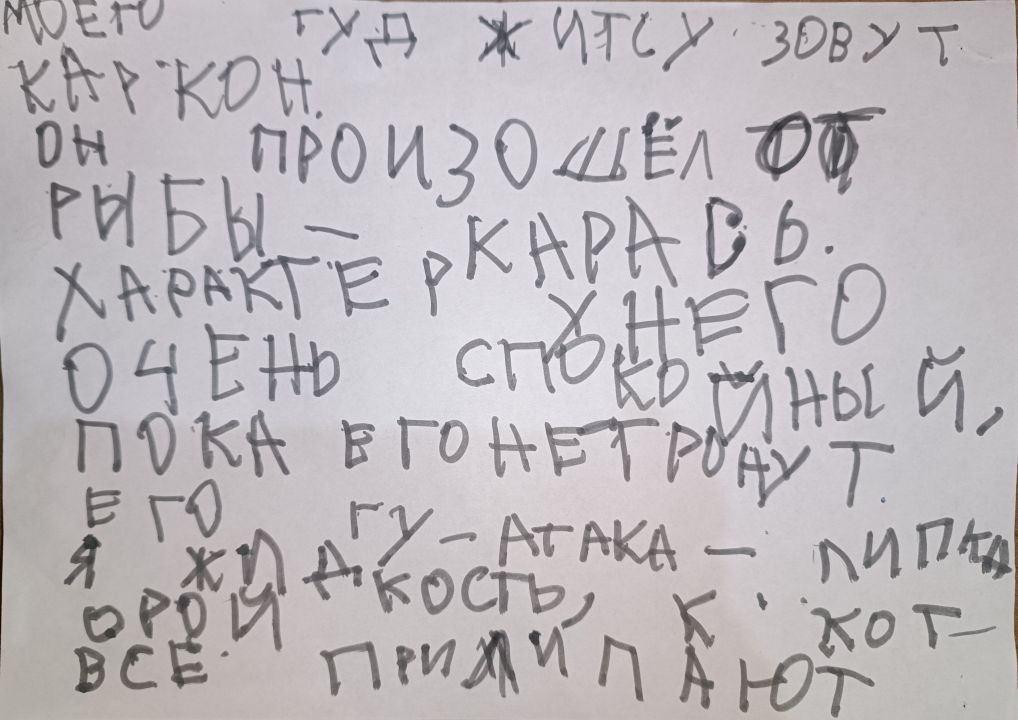 МОЕГО ГУД ЖИТСУ ЗОВУТ
КАРКОН.
ОН ПРОИЗОШЁЛ ОТ
РЫБЫ — КАРАСЬ.
ХАРАКТЕР У НЕГО
ОЧЕНЬ СПОКОЙНЫЙ,
ПОКА ЕГО НЕ ТРОНУТ.
ЕГО ГУ — АТАКА — ЛИПКА
Я ЖИДКОСТЬ, К КОТ—
ОРОЙ ВСЕ ПРИЛИПАЮТ